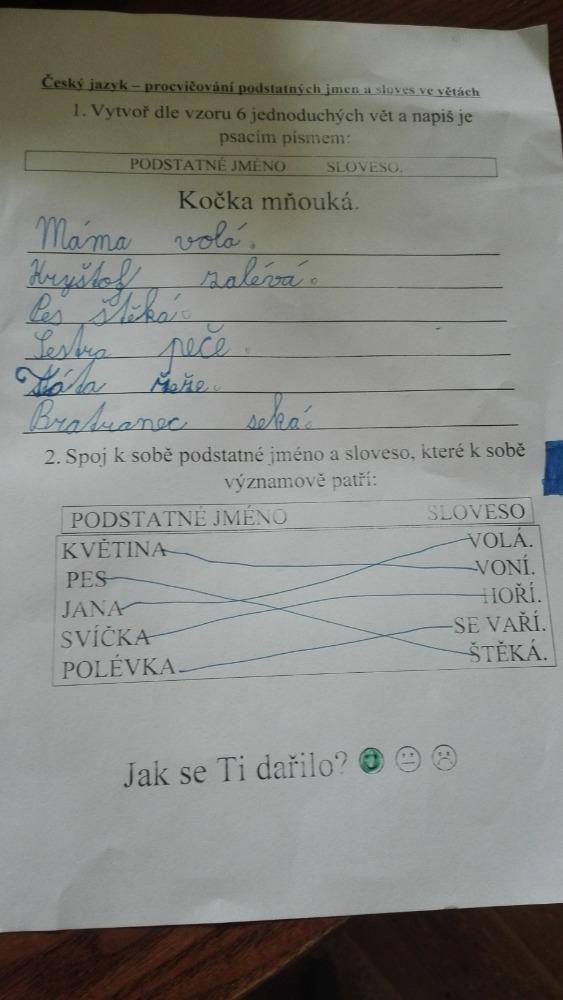 Český jazyk – procvičování podstatných jmen a sloves ve větách
1. Vytvoř dle vzoru 6 jednoduchých vět a napiš je
psacím písmem:
PODSTATNÉ JMÉNO SLOVESO.
Kočka mňouká.
Máma volá.
Kryštof zalévá.
Pes štěká.
Sestra peče.
Táta řeže.
Bratranec seká.
2. Spoj k sobě podstatné jméno a sloveso, které k sobě
významově patří:
PODSTATNÉ JMÉNO SLOVESO
KVĚTINA VOLÁ.
PES VONÍ.
JANA HOŘÍ.
SVÍČKA SE VAŘÍ.
POLÉVKA ŠTĚKÁ.
Jak se Ti dařilo?